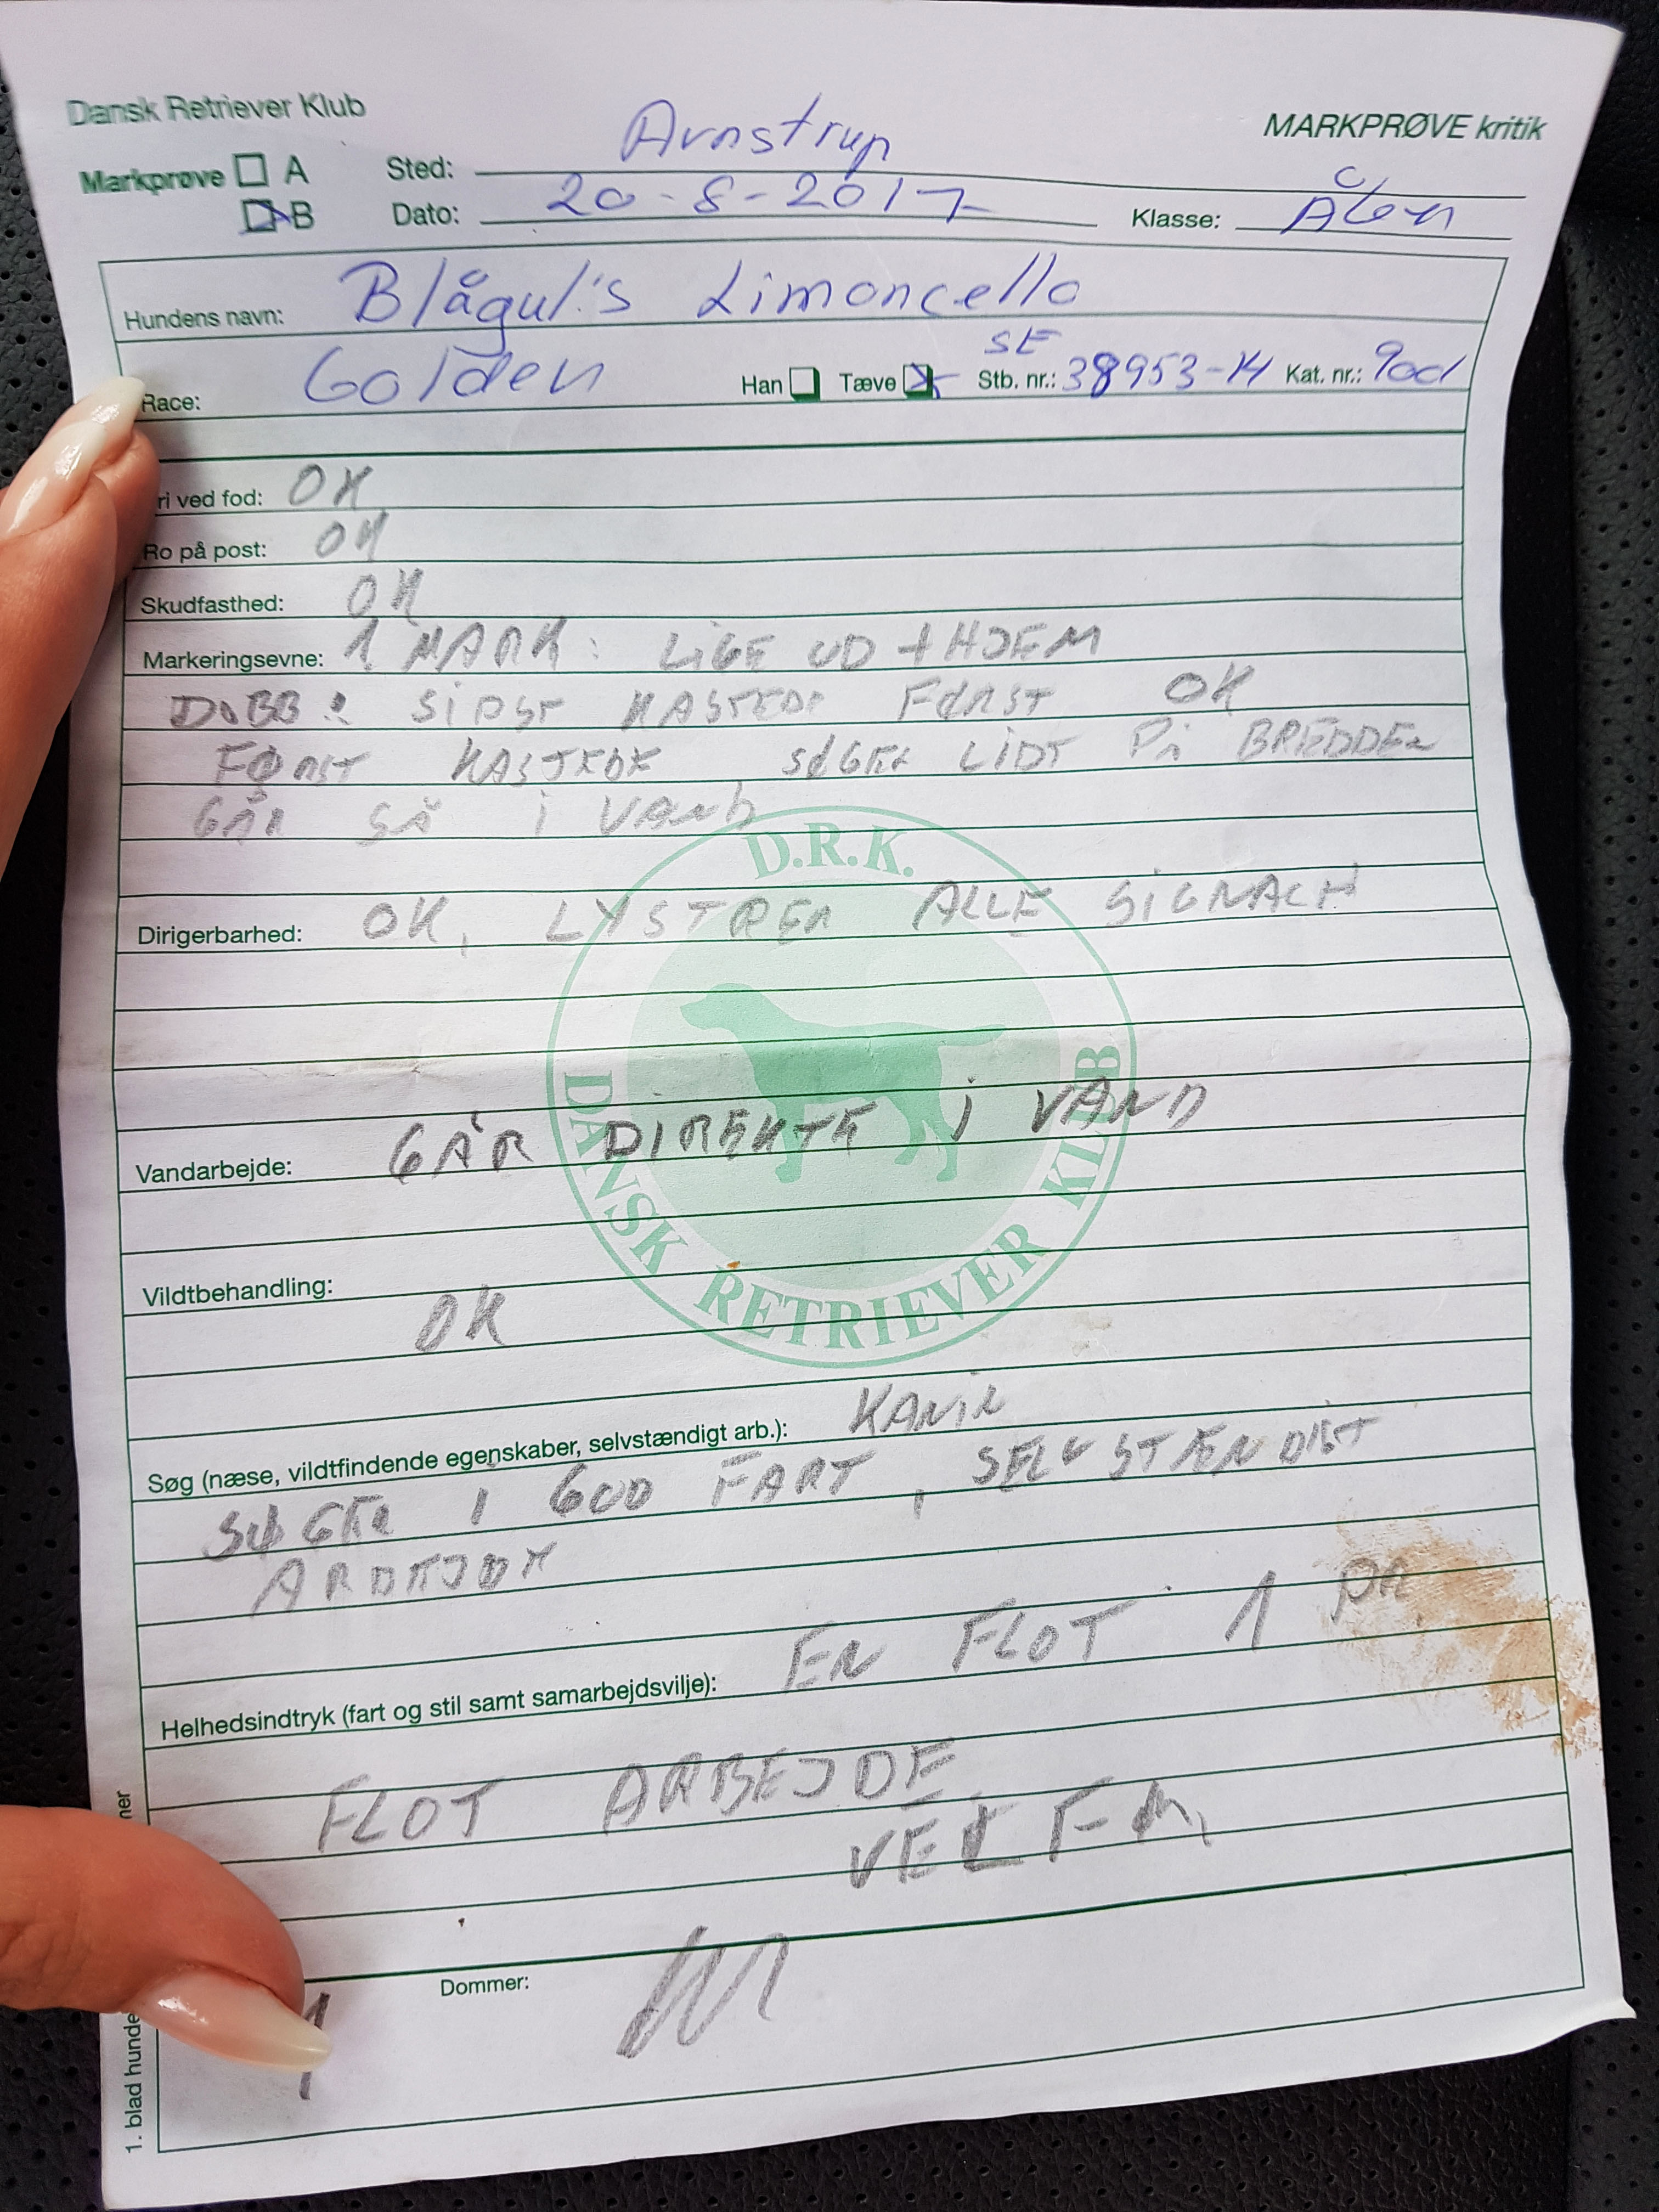 Dansk Retriever Klub
MARKPRØVE kritik
Markprøve A Sted: Arnstrup
B Dato: 20-8-2017 Klasse: Åben
Hundens navn: Blågul's Limoncello
Race: Golden Han Tæve Stb. nr.: SE 38953-14 Kat. nr.:
ri ved fod: OK
Ro på post: OK
Skudfasthed: OK
Markeringsevne: 1 MARK: LIGE UD + HJEM
DOBB: SIDST KASTEDE FØRST OK
FØRST KASTEDE SØGER LIDT På BREDDEN
GÅR SÅ i VAND
D.R.K.
DANSK RETRIEVER KLUB
Dirigerbarhed: OK, LYSTRER ALLE
Vandarbejde: GÅR DIREKTE i VAND
Vildtbehandling:
OK
Søg (næse, vildtfindende egenskaber, selvstændigt arb.): KANIN
SØGER i GOD FART, SELVSTÆNDIGT
ARBEJDE
Helhedsindtryk (fart og stil samt samarbejdsvilje): EN FLOT 1 PR.
FLOT ARBEJDE
Dommer:
1
1. blad hunde
ner